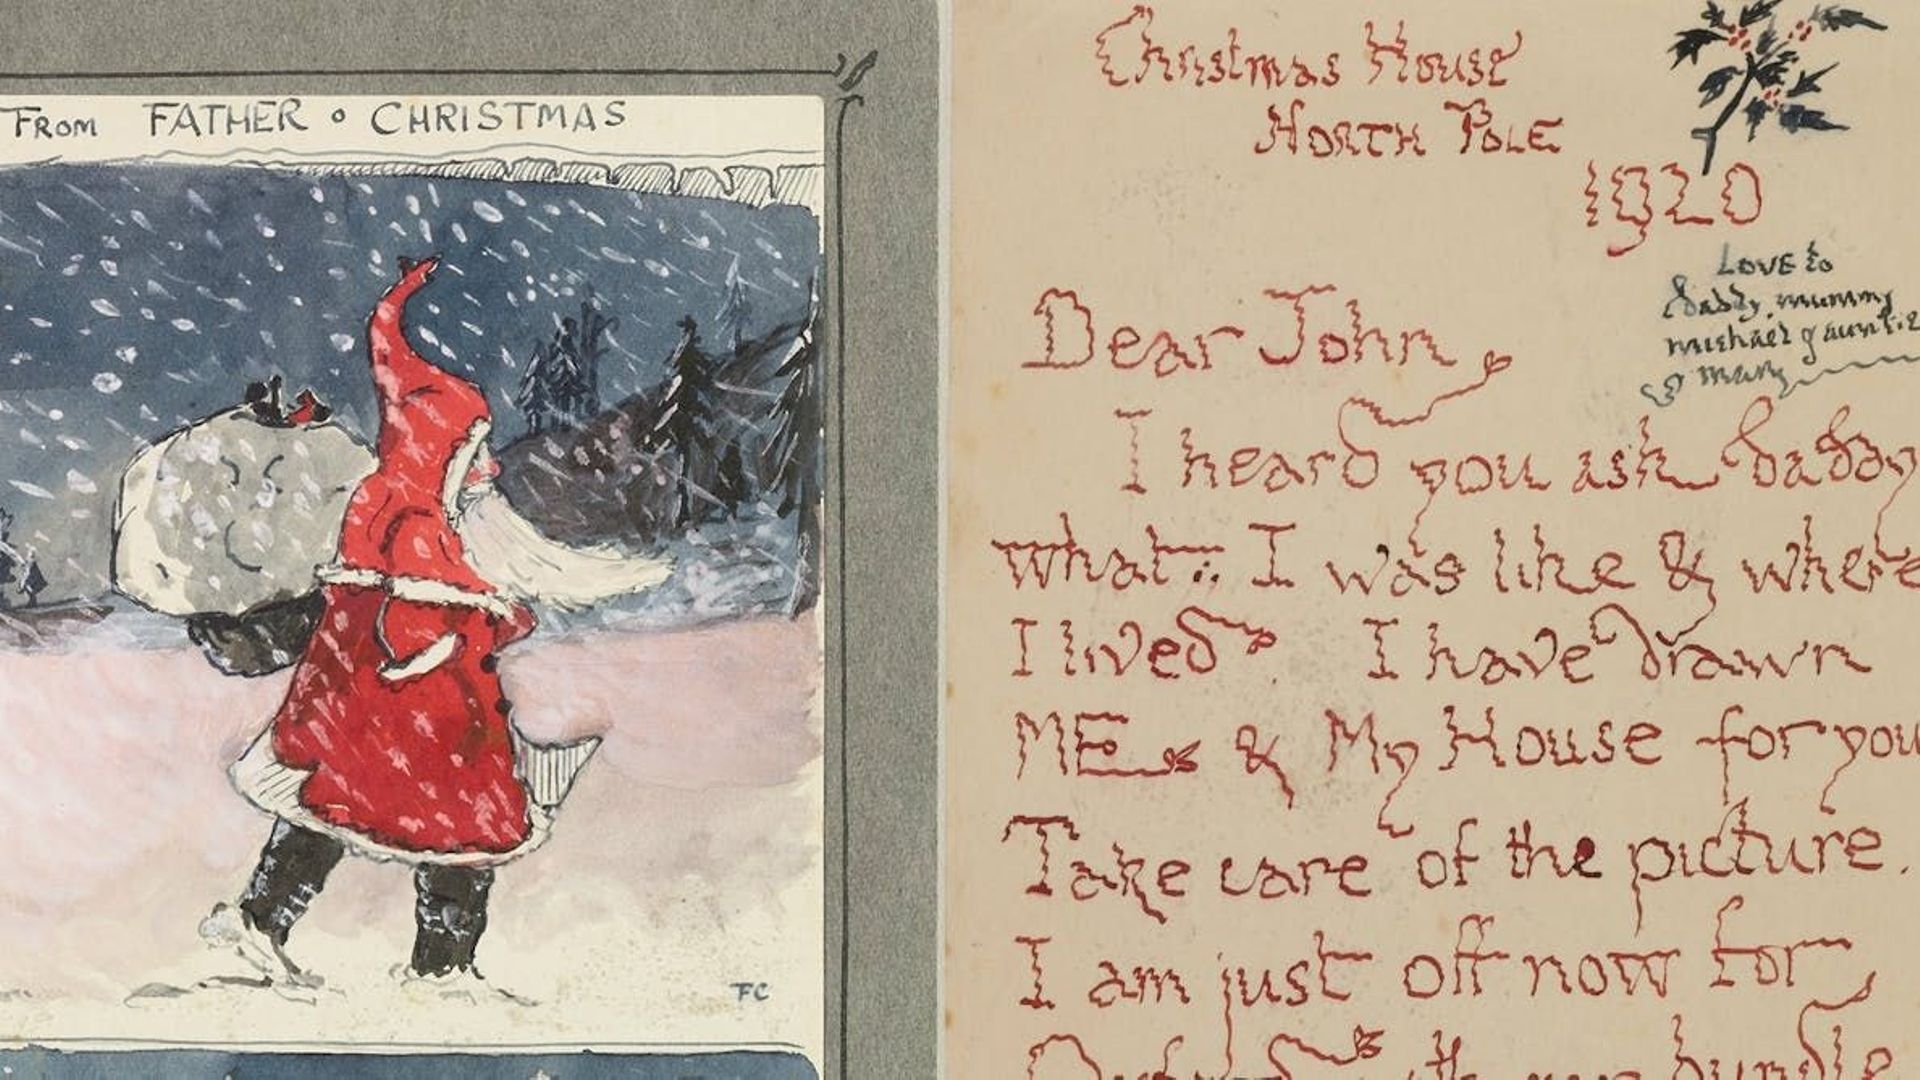 FROM FATHER · CHRISTMAS
FC
Christmas House
NORTH POLE
1920
LOVE to
daddy, mummy
michael & auntie
mary
Dear John,
I heard you ask daddy
what I was like & where
I lived. I have drawn
ME & My House for you
Take care of the picture.
I am just off now for
Oxford with my bundle